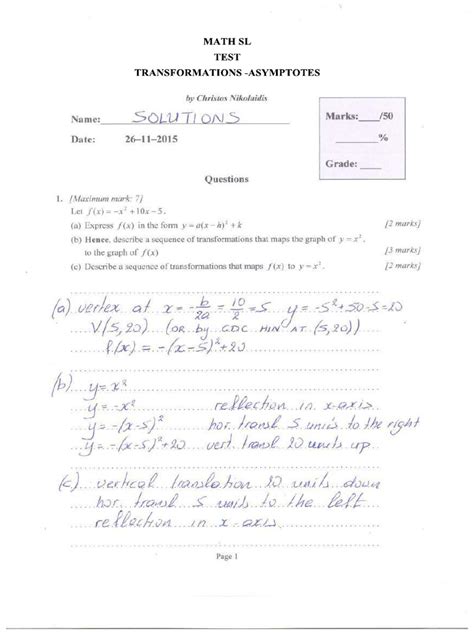 MATH SL
TEST
TRANSFORMATIONS -ASYMPTOTES
by Christos Nikolaidis
Name: SOLUTIONS
Marks: /50
Date: 26–11–2015
%
Grade:
Questions
1. [Maximum mark: 7]
Let f(x) = -x² + 10x - 5.
(a) Express f(x) in the form y = a(x - h)² + k [2 marks]
(b) Hence, describe a sequence of transformations that maps the graph of y = x²,
to the graph of f(x) [3 marks]
(c) Describe a sequence of transformations that maps f(x) to y = x². [2 marks]
(a) vertex at x = -b/2a = 10/2 = 5 y = -5²+50-5=20
V(5,20) (OR by GDC MIN AT (5,20))
f(x) = -(x-5)²+20
(b) y = x²
y = -x² reflection in x-axis
y = -(x-5)² hor. transl 5 units to the right
y = -(x-5)²+20 vert. transl 20 units up
(c) vertical translation 20 units down
hor. transl 5 units to the left
reflection in x-axis
Page 1